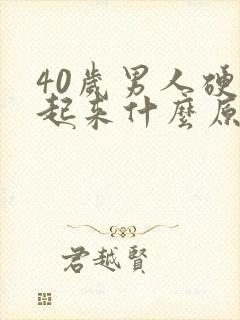 40歲男人硬
起来什麼原
君越賢